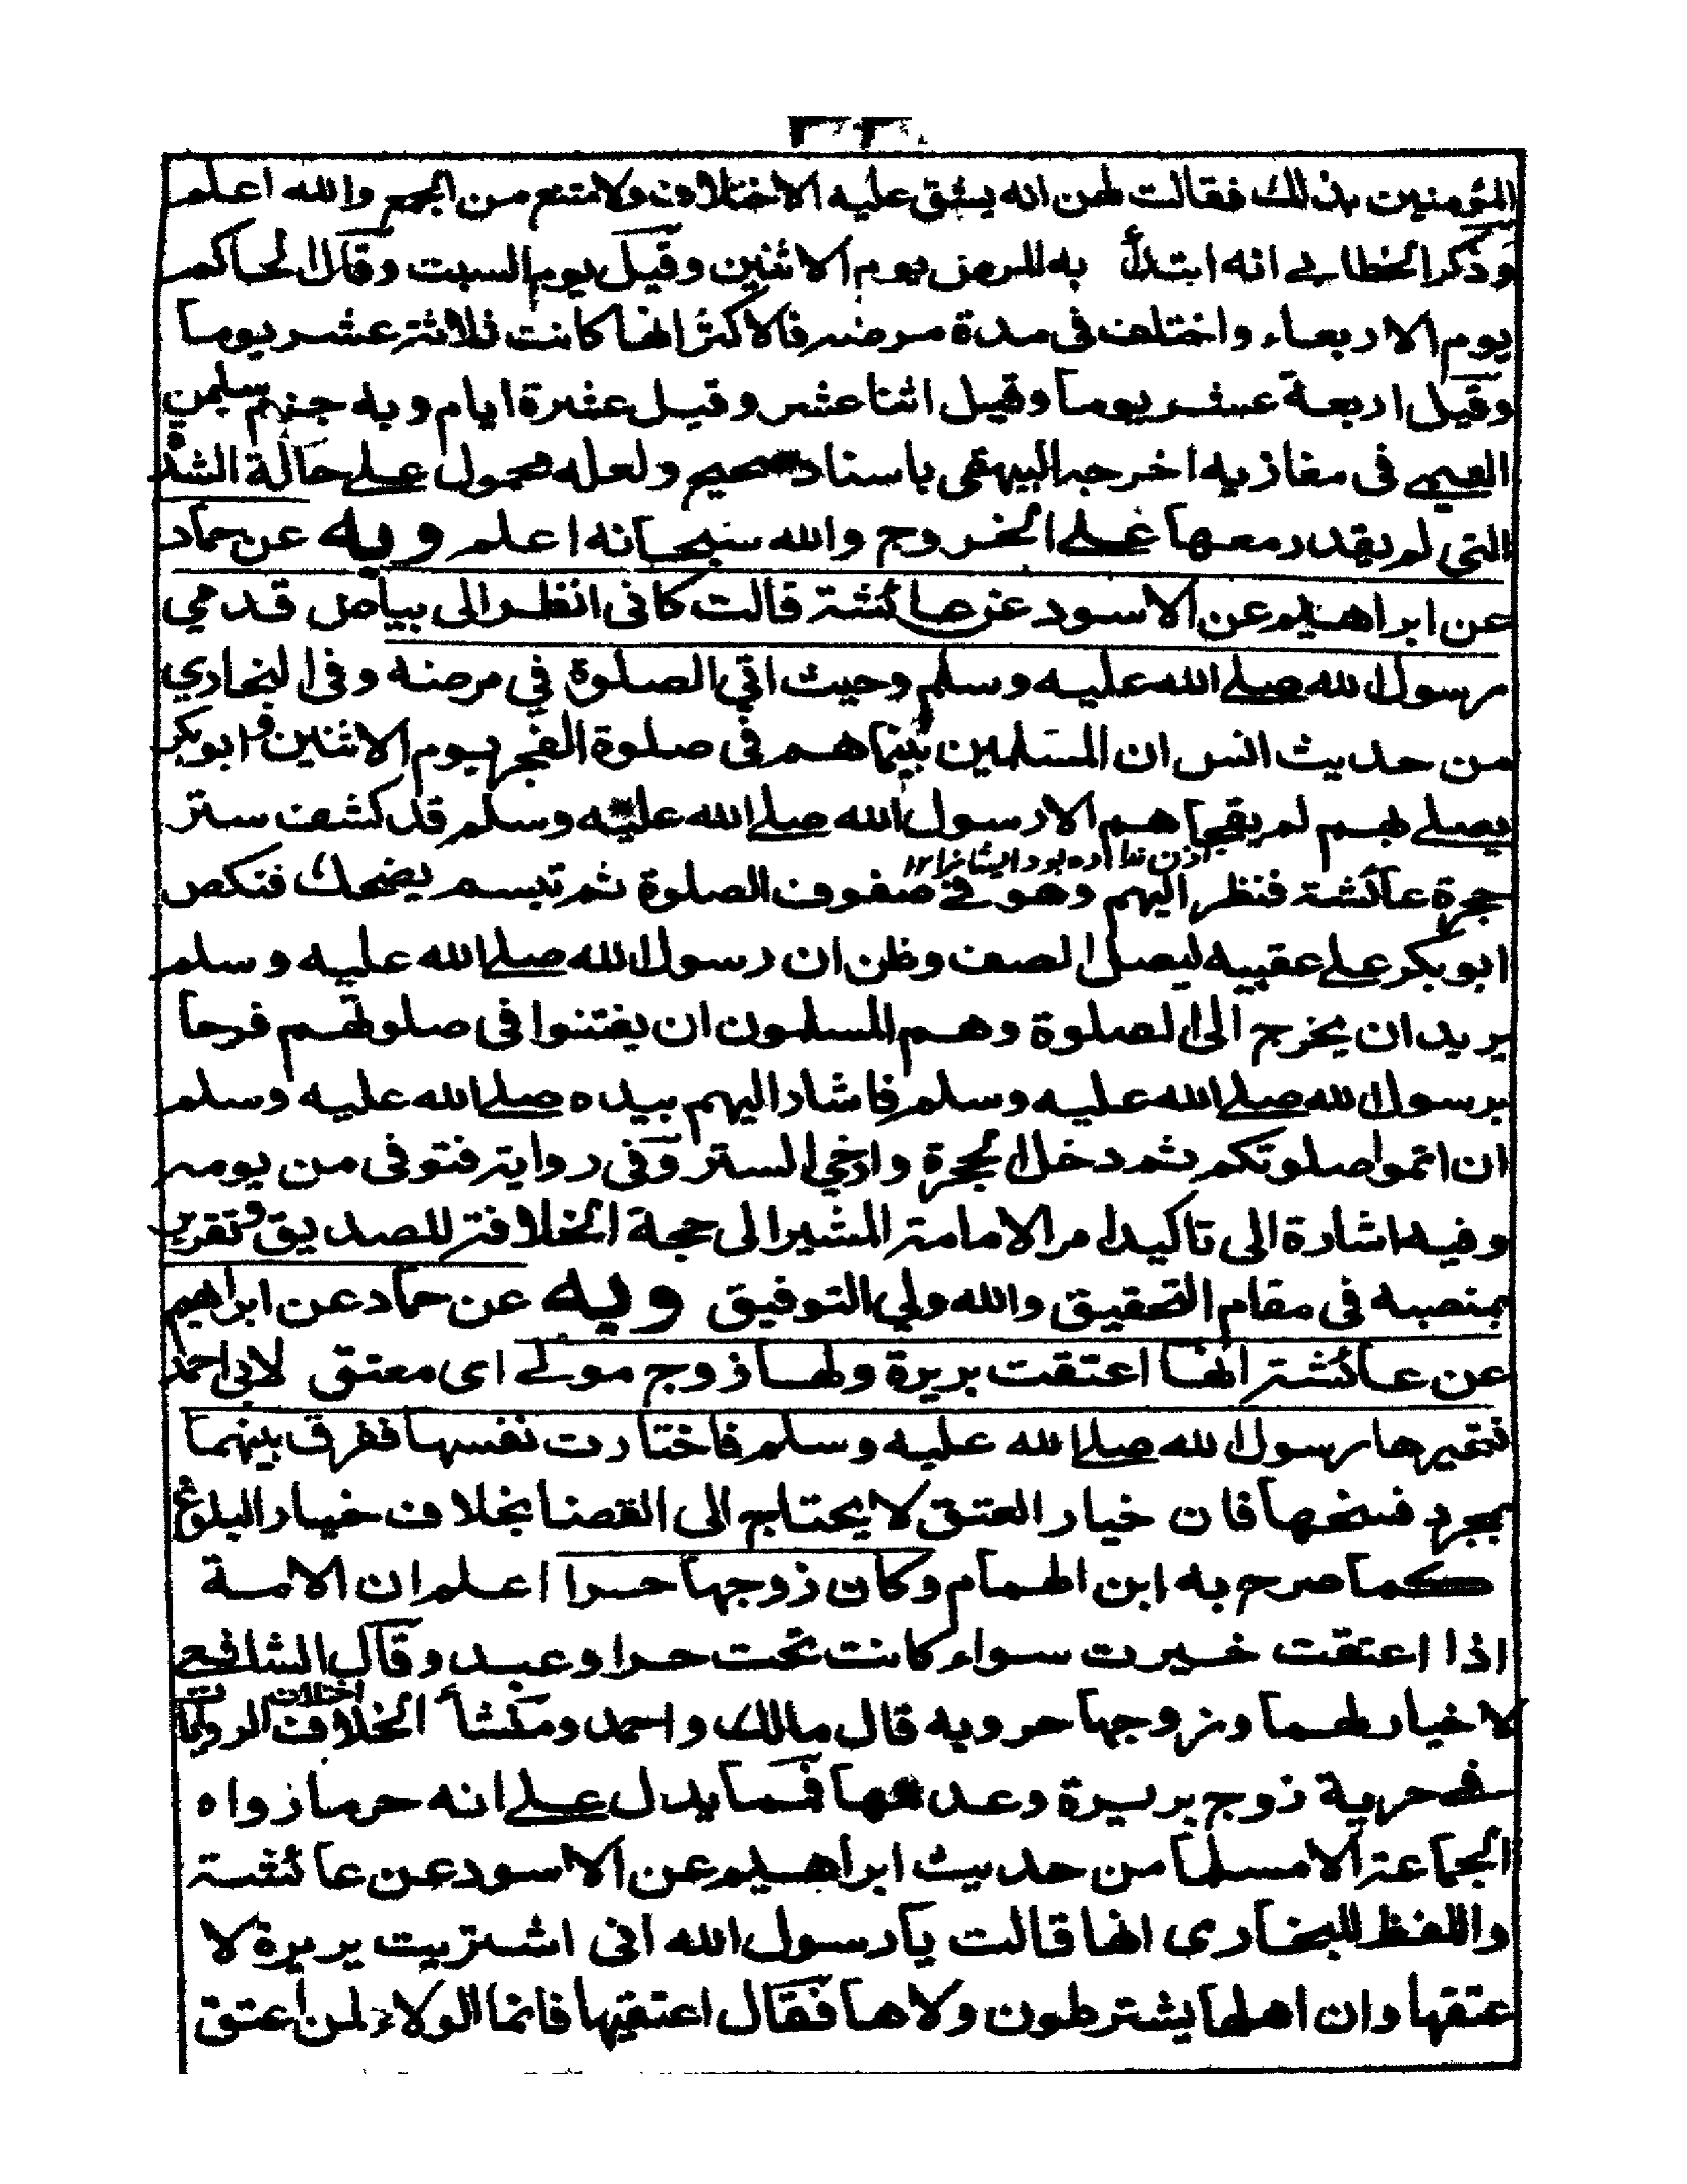 المؤمنين بذلك فقالت لهن انه يشق عليه الاختلاف ولامتنع من الجمع والله اعلم
وذكر الخطابي انه ابتدأ به المرض يوم الاثنين وقيل يوم السبت وقال الحاكم
يوم الاربعاء واختلف فى مدة مرضه فالاكثر انها كانت ثلاثة عشر يوما
وقيل اربعة عشر يوما وقيل اثنا عشر وقيل عشرة ايام وبه جزم سليمن
التيمي فى مغازيه اخرجه البيهقى باسناد صحيح ولعله محمول على حالة الشدة
التى لم يقدر معها على الخروج والله سبحانه اعلم وبه عن حماد
عن ابراهيم عن الاسود عن عائشة قالت كانى انظر الى بياض قدمي
رسول الله صلى الله عليه وسلم وحيث اتى الصلوة في مرضه وفى البخاري
من حديث انس ان المسلمين بينما هم فى صلوة الفجر يوم الاثنين وابو بكر
يصلى بهم لم يفجأهم الا رسول الله صلى الله عليه وسلم قد كشف ستر
حجرة عائشة فنظر اليهم وهو فى صفوف الصلوة ثم تبسم يضحك فنكص
ابو بكر على عقبيه ليصل الصف وظن ان رسول الله صلى الله عليه وسلم
يريد ان يخرج الى الصلوة وهم المسلمون ان يفتنوا فى صلوتهم فرحا
برسول الله صلى الله عليه وسلم فاشار اليهم بيده صلى الله عليه وسلم
ان اتموا صلوتكم ثم دخل الحجرة وارخى الستر وفى رواية فتوفى من يومه
وفيه اشارة الى تاكيد امر الامامة المشير الى حجة الخلافة للصديق وتقرير
بمنصبه فى مقام التحقيق والله ولي التوفيق وبه عن حماد عن ابراهيم
عن عائشة انها اعتقت بريرة ولها زوج مولى اى معتق لابى احمد
فخيرها رسول الله صلى الله عليه وسلم فاختارت نفسها ففرق بينهما
بمجرد فسخها فان خيار العتق لا يحتاج الى القضا بخلاف خيار البلوغ
كما صرح به ابن الهمام وكان زوجها حرا اعلم ان الامة
اذا اعتقت خيرت سواء كانت تحت حر او عبد وقال الشافعي
لا خيار لهما وزوجها حر وبه قال مالك واحمد ومنشأ الخلاف اختلاف الروايتين
فى حرية زوج بريرة وعدمها فمما يدل على انه حر ما رواه
الجماعة الا مسلما من حديث ابراهيم عن الاسود عن عائشة
واللفظ للبخارى انها قالت يا رسول الله انى اشتريت بريرة لا
عتقها وان اهلها يشترطون ولاها فقال اعتقيها فانما الولاء لمن اعتق